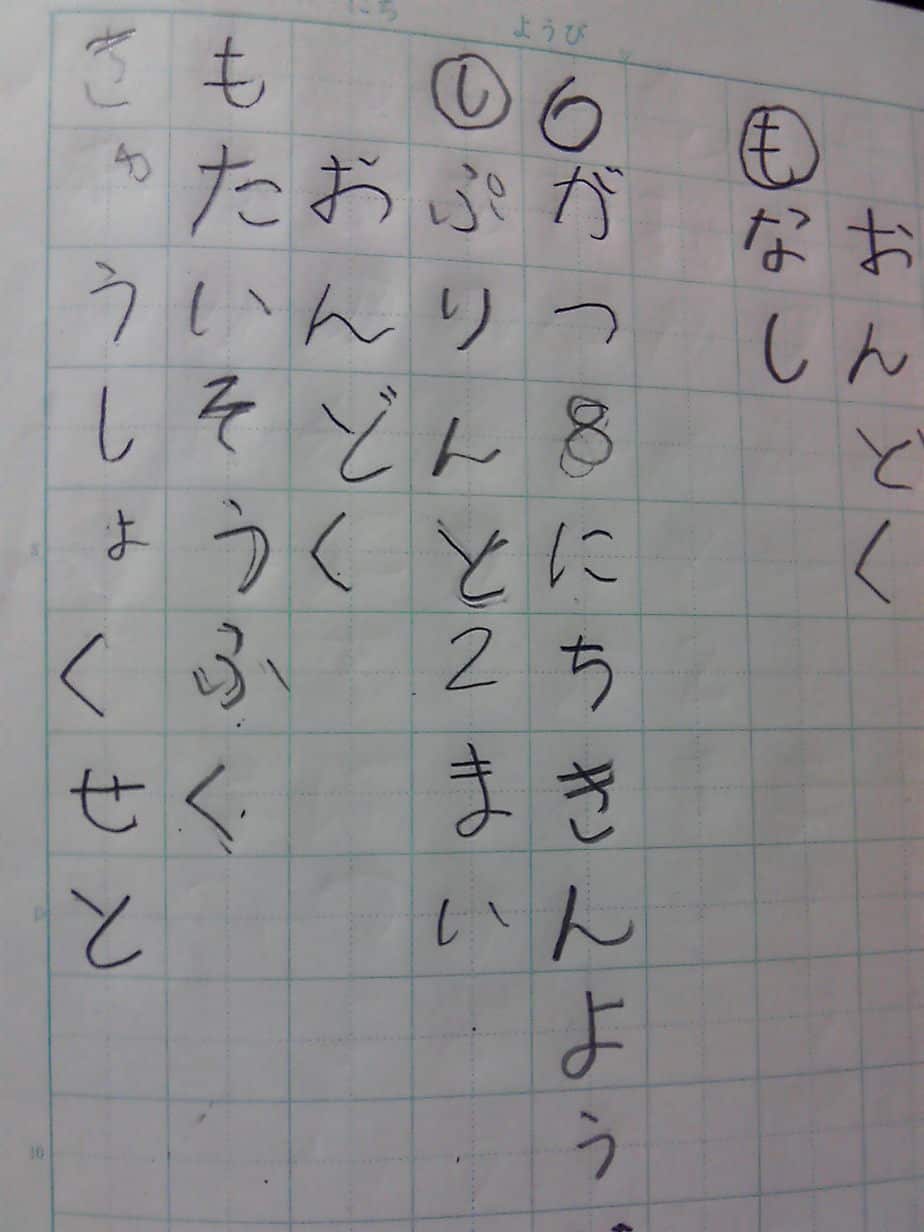 にち
ようび
おんどく
もなし
6がつ8にちきんよう
しぷりんと2まい
おんどく
もたいそうふく
きゅうしょくせと
10